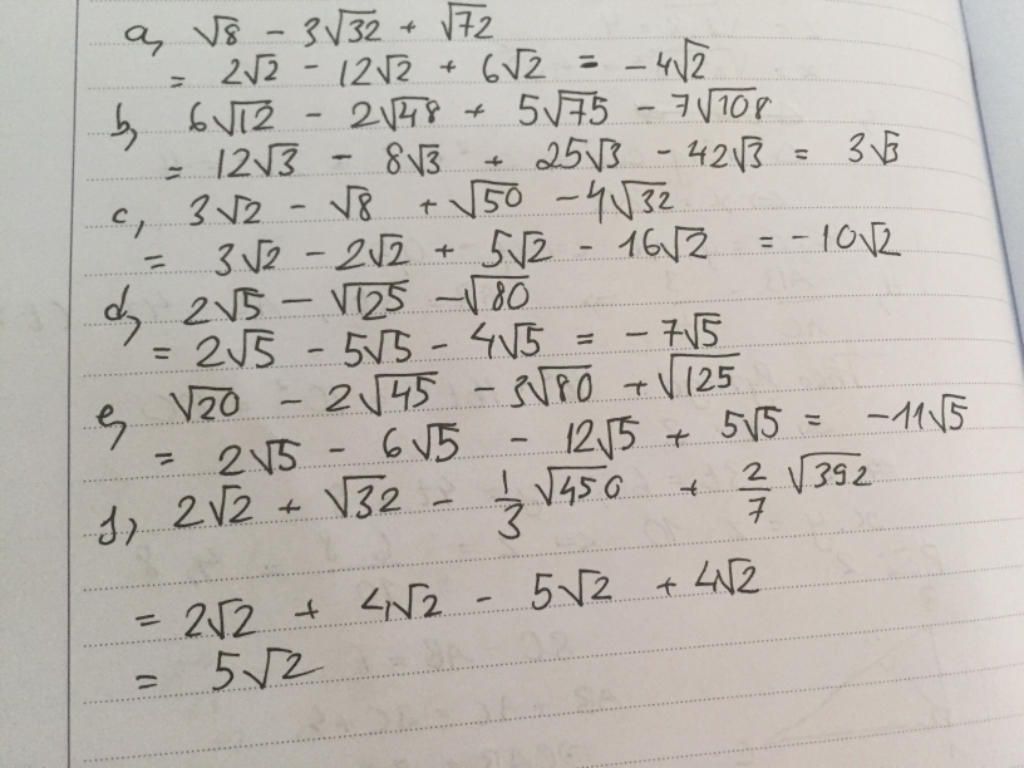 a, √8 - 3√32 + √72
= 2√2 - 12√2 + 6√2 = -4√2
b, 6√12 - 2√48 + 5√75 - 7√108
= 12√3 - 8√3 + 25√3 - 42√3 = 3√3
c, 3√2 - √8 + √50 - 4√32
= 3√2 - 2√2 + 5√2 - 16√2 = -10√2
d, 2√5 - √125 - √80
= 2√5 - 5√5 - 4√5 = -7√5
e, √20 - 2√45 - 3√80 + √125
= 2√5 - 6√5 - 12√5 + 5√5 = -11√5
f, 2√2 + √32 - 1/3 √450 + 2/7 √392
= 2√2 + 4√2 - 5√2 + 4√2
= 5√2